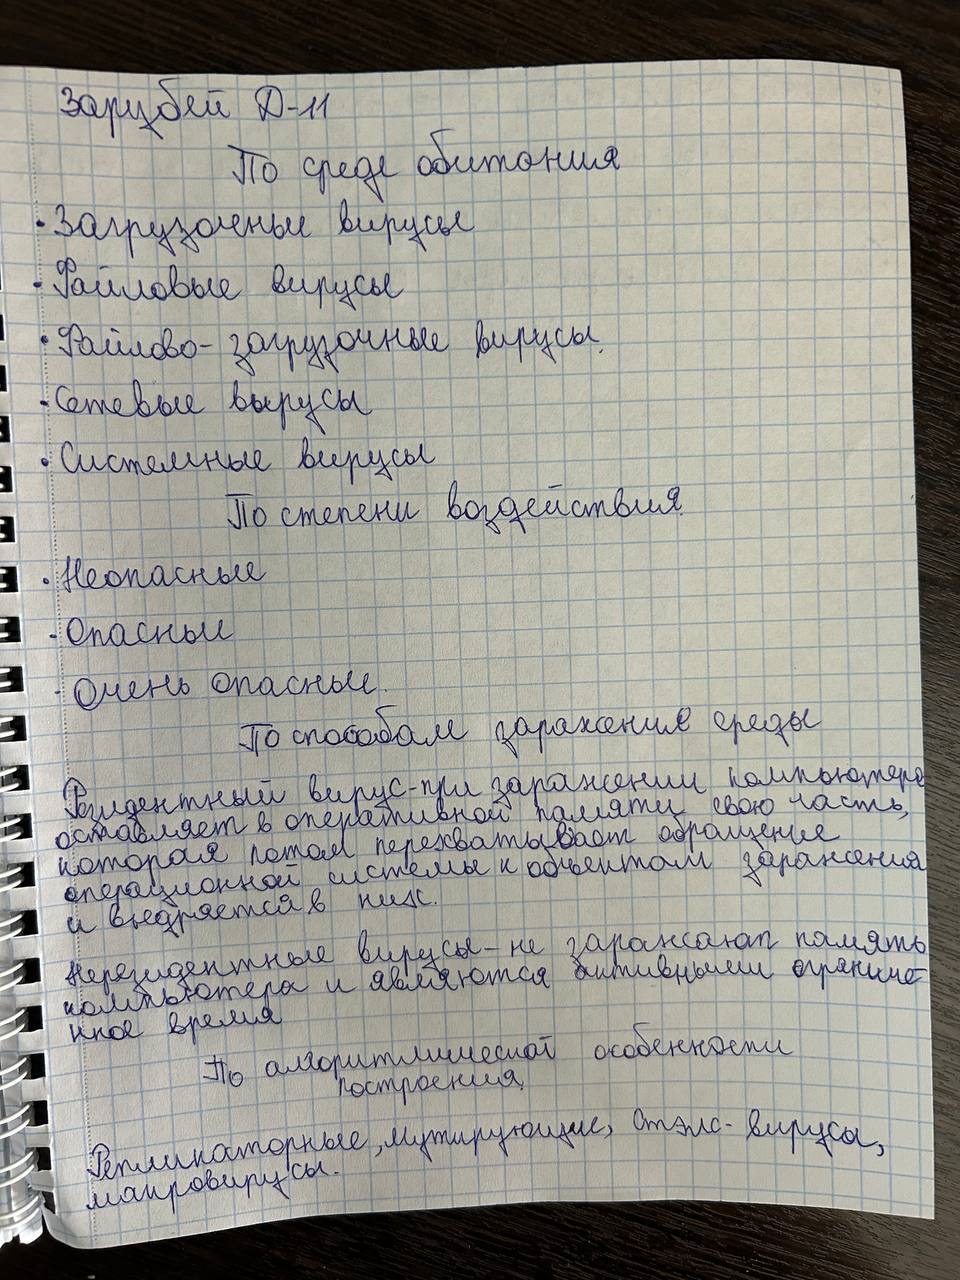 Зарубей Д-11
По среде обитания
· Загрузочные вирусы
· Файловые вирусы
· Файлово-загрузочные вирусы.
· Сетевые вырусы
· Системные вирусы
По степени воздействия.
· Неопасные
· Опасные
· Очень опасные.
По способам заражения среды
Резидентный вирус-при заражении компьютера
оставляет в оперативной памяти свою часть,
которая потом перехватывает обращение
операционной системы к объектам заражения
и внедряется в них.
Нерезидентные вирусы-не заражают память
компьютера и являются активными ограниче
нное время
По алгоритмической особенности
построения.
Репликаторные, мутирующие, стэлс-вирусы,
макровирусы.